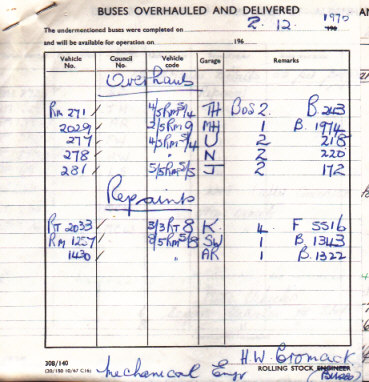 BUSES OVERHAULED AND DELIVERED
The undermentioned buses were completed on 2. 12. 1970
and will be available for operation on 196
Vehicle No. Council No. Vehicle code Garage Remarks
Overhauls
RM 271 / 4/5RM5/4 TH BOS 2 B.243
2029 / 2/5RM9 MH 1 B.1974
277 / 4/5RM5/4 U 2 218
278 / " N 2 220
281 / 5/5RM5/5 J 2 172
Repaints
RT 2033 / 3/3RT8 K 4 F 5516
RM 1257 / 8/5RM5/8 SW 1 B.1343
1430 / " AR 1 B.1322
H.W. Cromack
20B/140 Mechanical Engr ROLLING STOCK ENGINEER
(Buses)